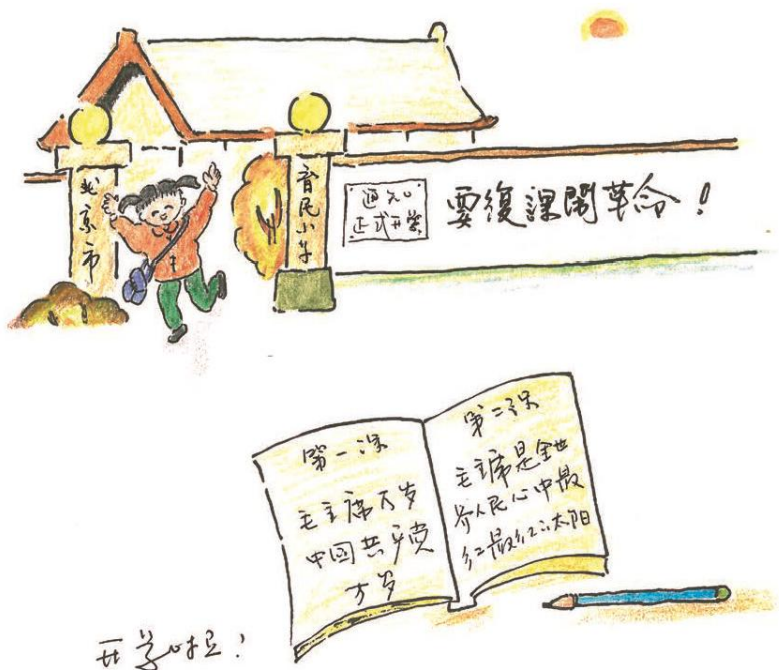 北京市
育民小学
通知
正式开学
要復課鬧革命！
第一课
毛主席万岁
中国共产党
万岁
第二课
毛主席是全世
界人民心中最
红最红的太阳
开学啦！